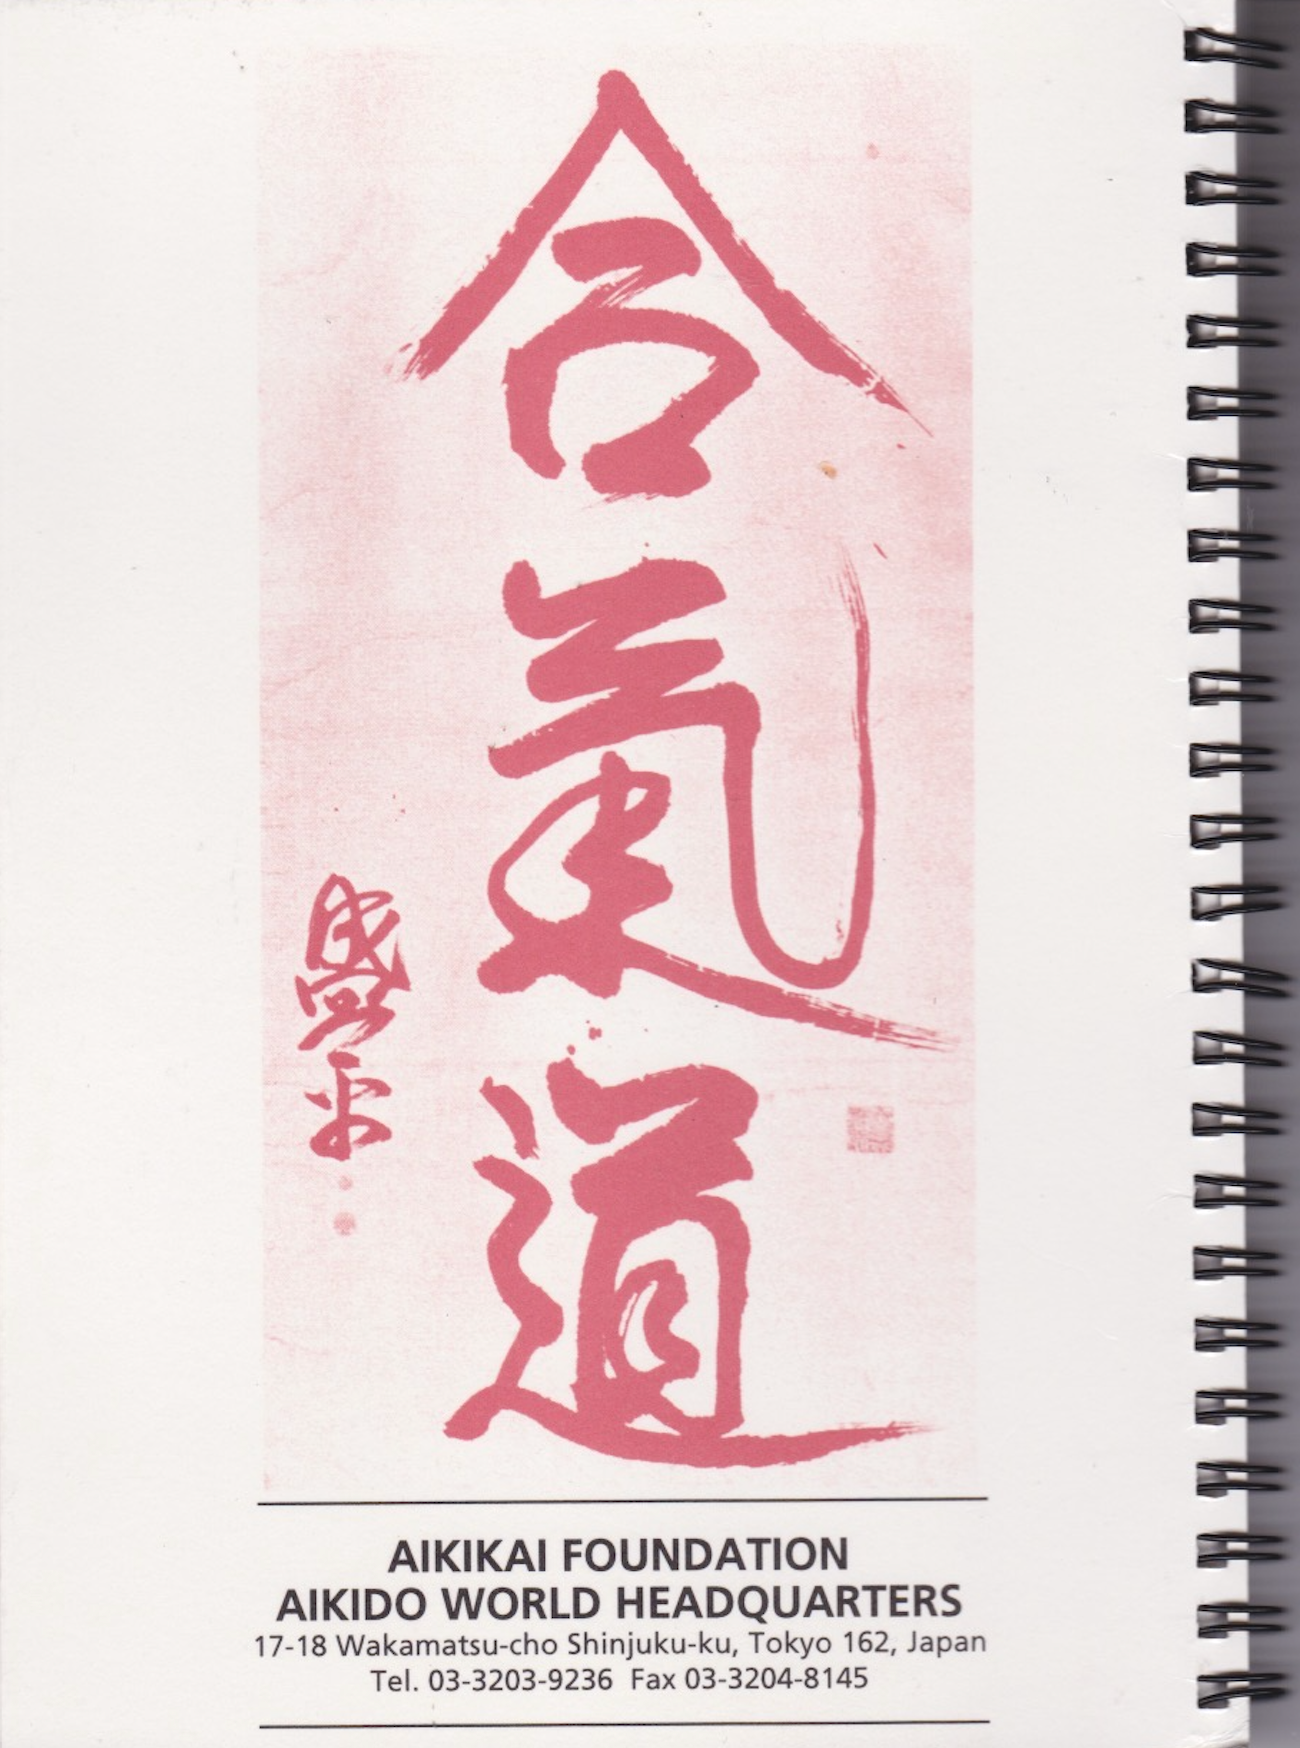 合氣道
盛平
AIKIKAI FOUNDATION
AIKIDO WORLD HEADQUARTERS
17-18 Wakamatsu-cho Shinjuku-ku, Tokyo 162, Japan
Tel. 03-3203-9236 Fax 03-3204-8145